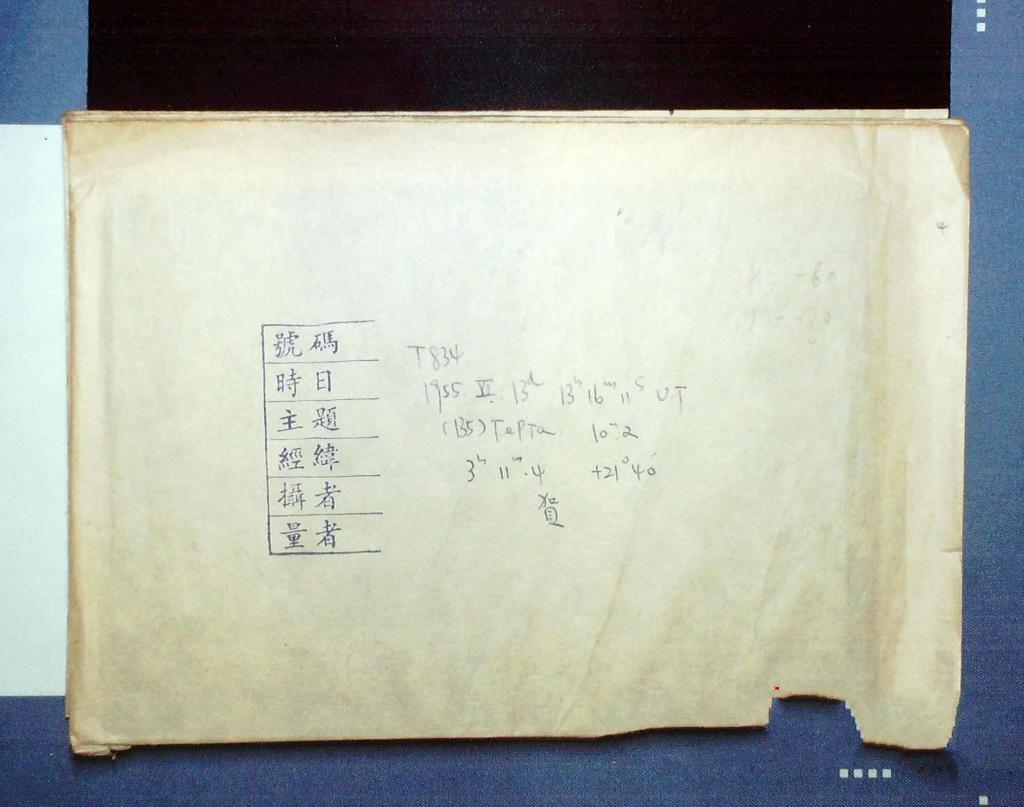 號碼 T834
時日 1955. II. 13ᵈ 13ʰ 16ᵐ 11ˢ U.T
主題 (135) Герта 10ᵐ.2
經緯 3ʰ 11ᵐ.4 +21°40′
攝者 賀
量者